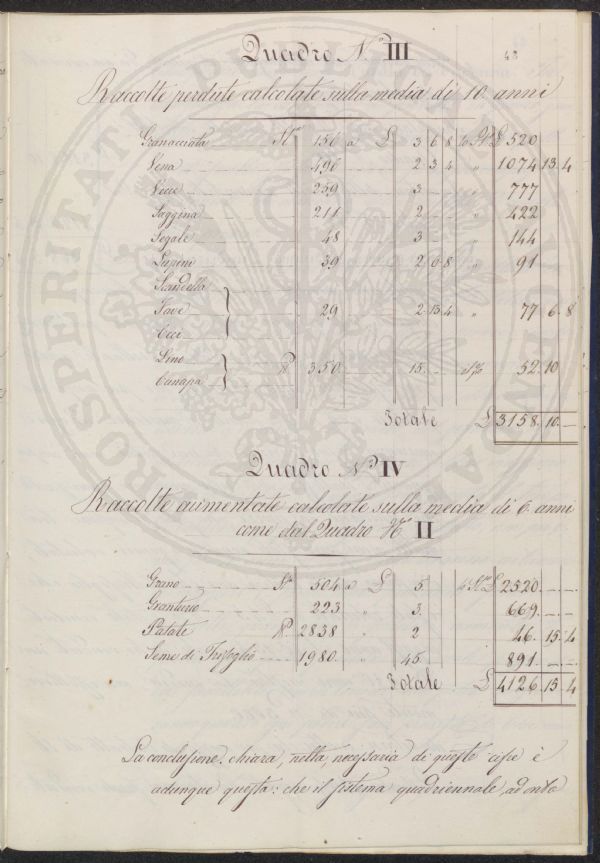 43
Quadro N.º III
Raccolte perdute calcolate sulla media di 10. anni
Granacciata N.º 156 a L 3 6 8 lo St L 520
Vena 496 2 3 4 " 1074 13 4
Vecce 259 3 " 777
Saggina 211 2 " 422
Segale 48 3 " 144
Lupini 39 2 6 8 " 91
Scandella
Fave } 29 2 13 4 " 77 6 8
Ceci
Lino
Canapa } 350 15 52 10
Totale L 3158. 10. —
Quadro N.º IV
Raccolte aumentate calcolate sulla media di 6. anni
come dal Quadro N.º II
Grano 504 a L 5 L 2520. — —
Granturco 223 " 3. 669. — —
Patate 2838 " 2 46. 15. 4
Seme di Trifoglio 1980. " 45. 891. — —
Totale L 4126. 15. 4
La conclusione. chiara, netta, necessaria di queste cifre è
adunque questa: che il sistema quadriennale, ad onta
PROSPERITATI PUBLICAE AUGENDAE